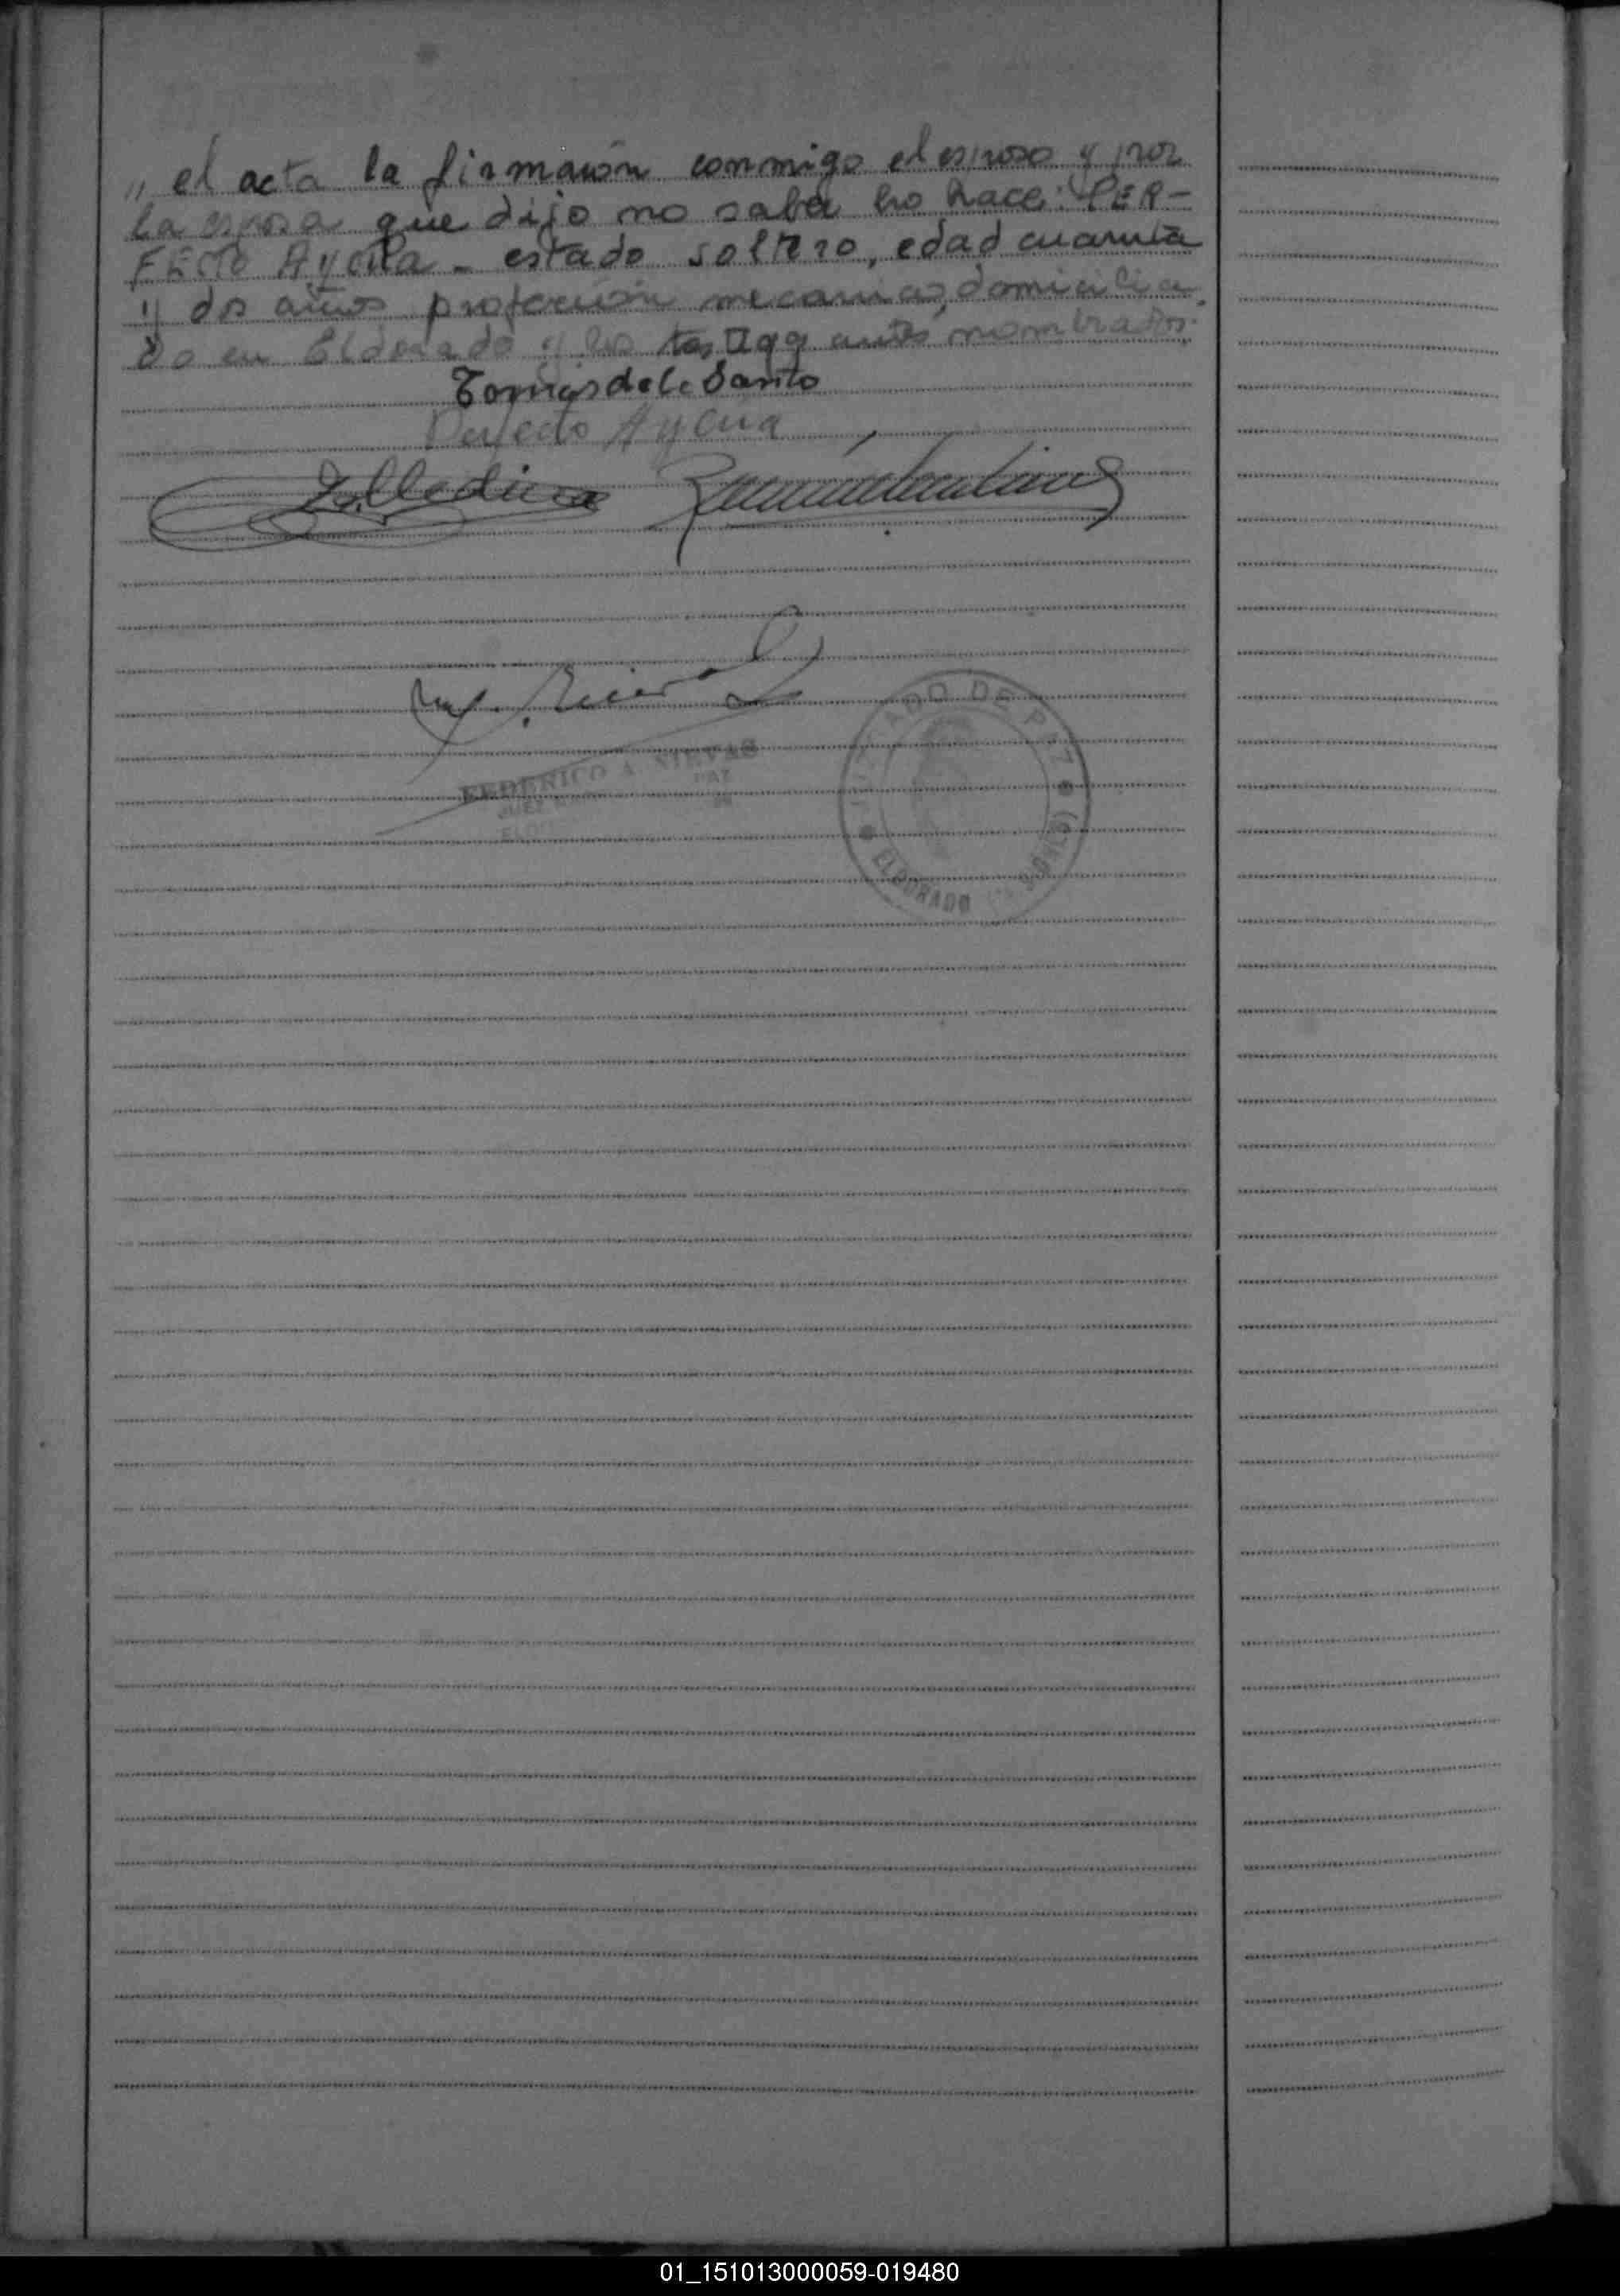 ,, el acta la firmaron conmigo el esposo y por
la esposa que dijo no saber lo hace: PER-
FECTO Ayala - estado soltero, edad cuarenta
y dos años profesión mecanico, domicilia
do en Eldorado y los testigos antes nombrados.
Tomás dele Santo
Perfecto Ayala
Medina
FEDERICO A NIEVAS
JUEZ PAZ
ELDO
JUZGADO DE PAZ
ELDORADO (MISIONES)
01_151013000059-019480